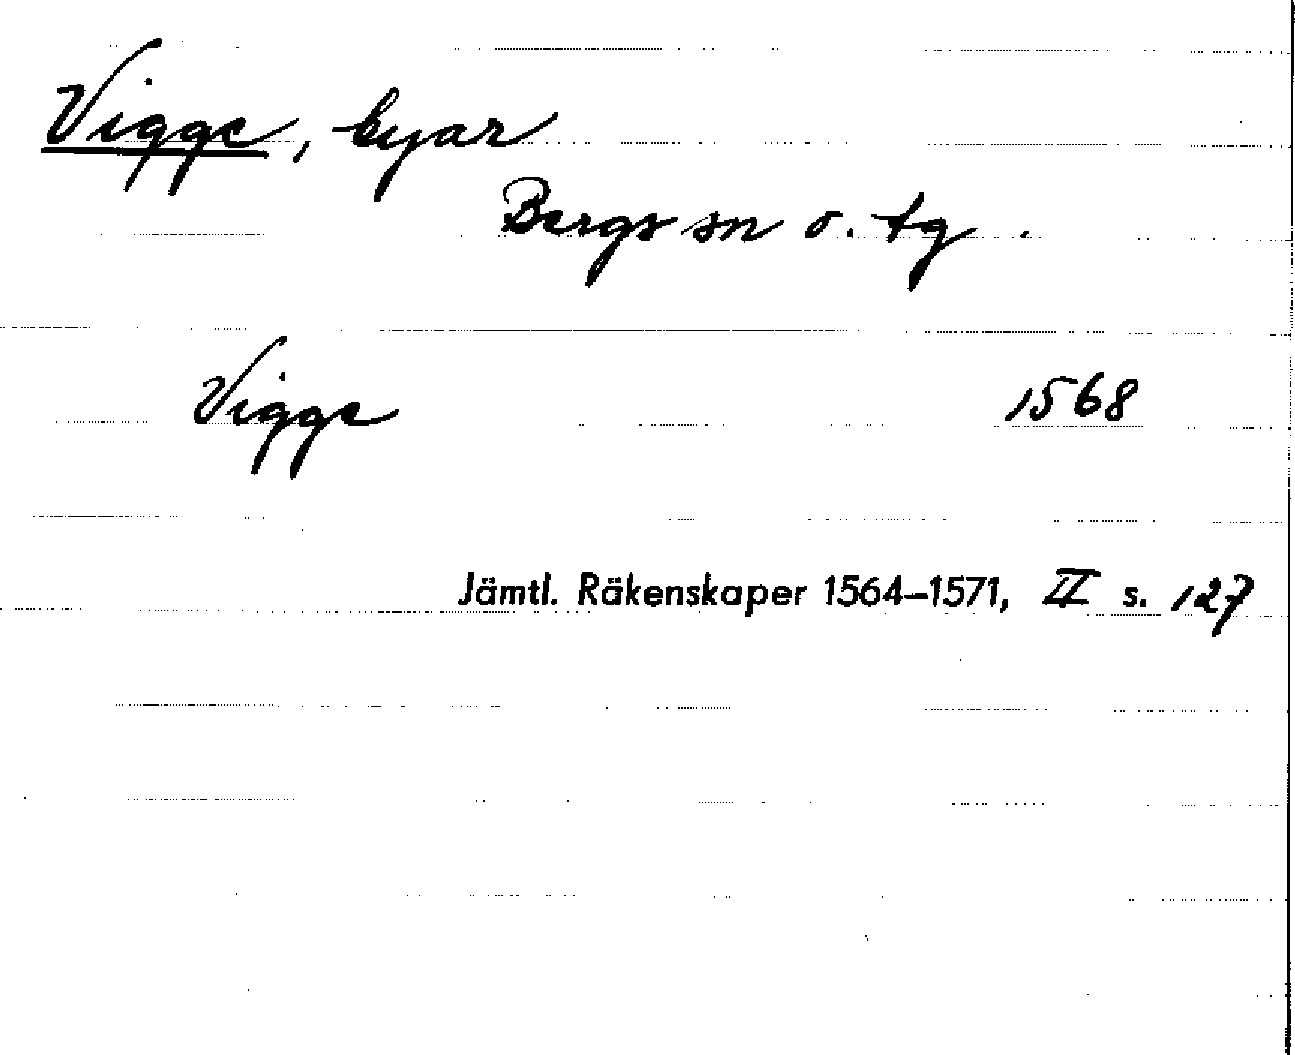 Vigge, byar
Bergs sn o. tg.
Vigge 1568
Jämtl. Räkenskaper 1564–1571, II s. 127